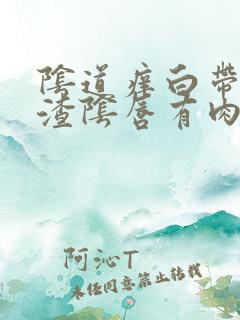 陰道痒白帶
渣陰唇有肉
阿沁T
未经同意禁止转载